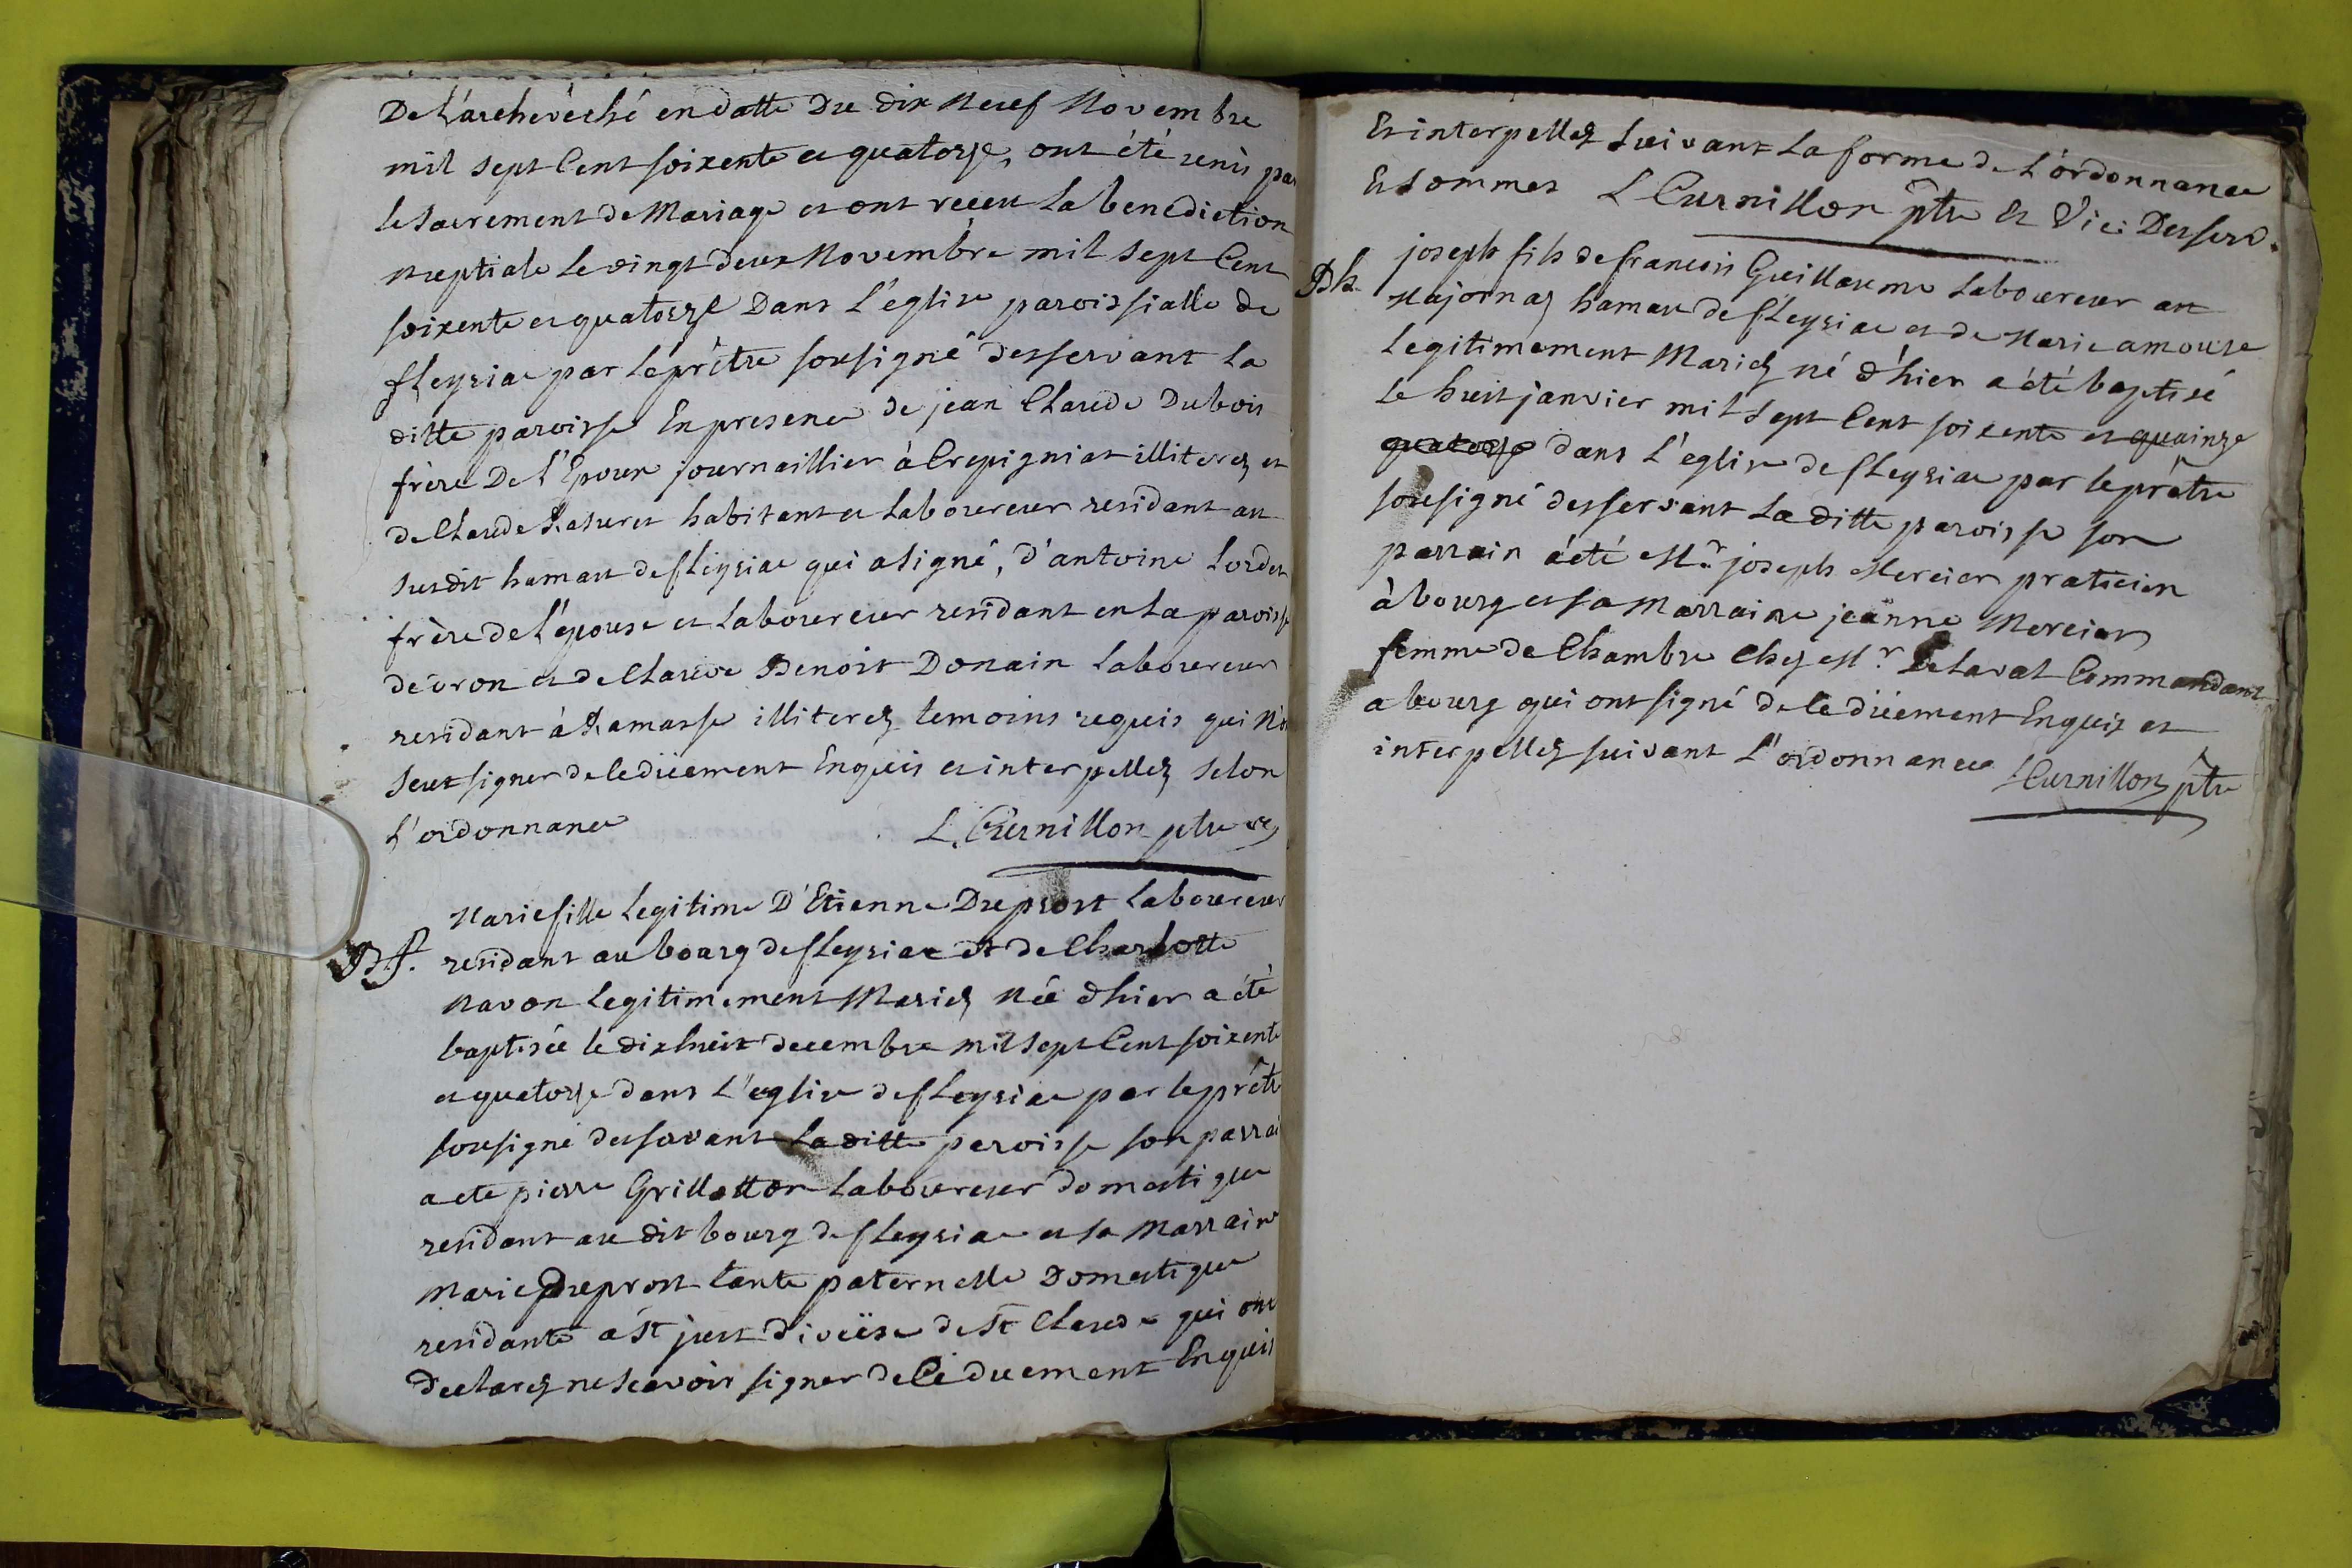 De L'archevêché en datte Du dix Neuf Novembre
mil sept Cent soixente et quatorze, ont été unis par
le sacrement de Mariage et ont receu La benediction
nuptiale le vingt deux Novembre mil sept Cent
soixente et quatorze Dans L'eglise paroissialle de
fleyriac par le prêtre sousigné desservant La
ditte paroisse En presence de jean Claude Dubois
frère De L'Epoux journaillier à Crepigniat illiterez et
de Claude habitant et Laboureur residant au
susdit hamau de fleyriac qui a signé, d'antoine Lordet
frère de L'épouse et Laboureur residant en La paroisse
de et de Claude Benoit Donain Laboureur
residant à Ramasse illiterez temoins requis qui n'on
seut signer de ce duement Enquis et interpellez selon
L'ordonnance L. Curnillon ptre
Marie fille Legitime D'Etienne Duprost Laboureur
Bf. residant au bourg de fleyriac et de Charlotte
Navon Legitimement Mariez Née d'hier a été
baptisée le dix huit decembre mil sept Cent soixente
et quatorze dans L'eglise de fleyriac par le prêtre
sousigné desservant La ditte paroisse son parrai
a ete pierre Grillotton Laboureur domestique
residant au dit bourg de fleyriac et sa Marraine
Marie Duprost tante paternelle Domestique
residante a St just diocëse de St Claude qui ont
Declarez ne scavoir signer de Ce duement Enquis
Et interpellez suivant La forme de L'ordonnance
Et sommez L Curnillon ptre Et Vic: Desserv.
joseph fils de francois Guillaume Laboureur au
Bh. Majornas hamau de fleyriac et de Marie amouse
Legitimement Mariez né d'hier a été baptisé
le huit janvier mil sept Cent soixente et quainze
quatorze dans L'eglise de fleyriac par le prêtre
sousigné desservant La ditte paroisse son
parrain a été Mr. joseph Mercier praticien
à bourg et sa Marraine jeanne Mercier
femme de Chambre Chez Mr. Delaval Commandant
a bourg qui ont signé de ce düement Enquis et
interpellez suivant L'ordonnance L Curnillon ptre